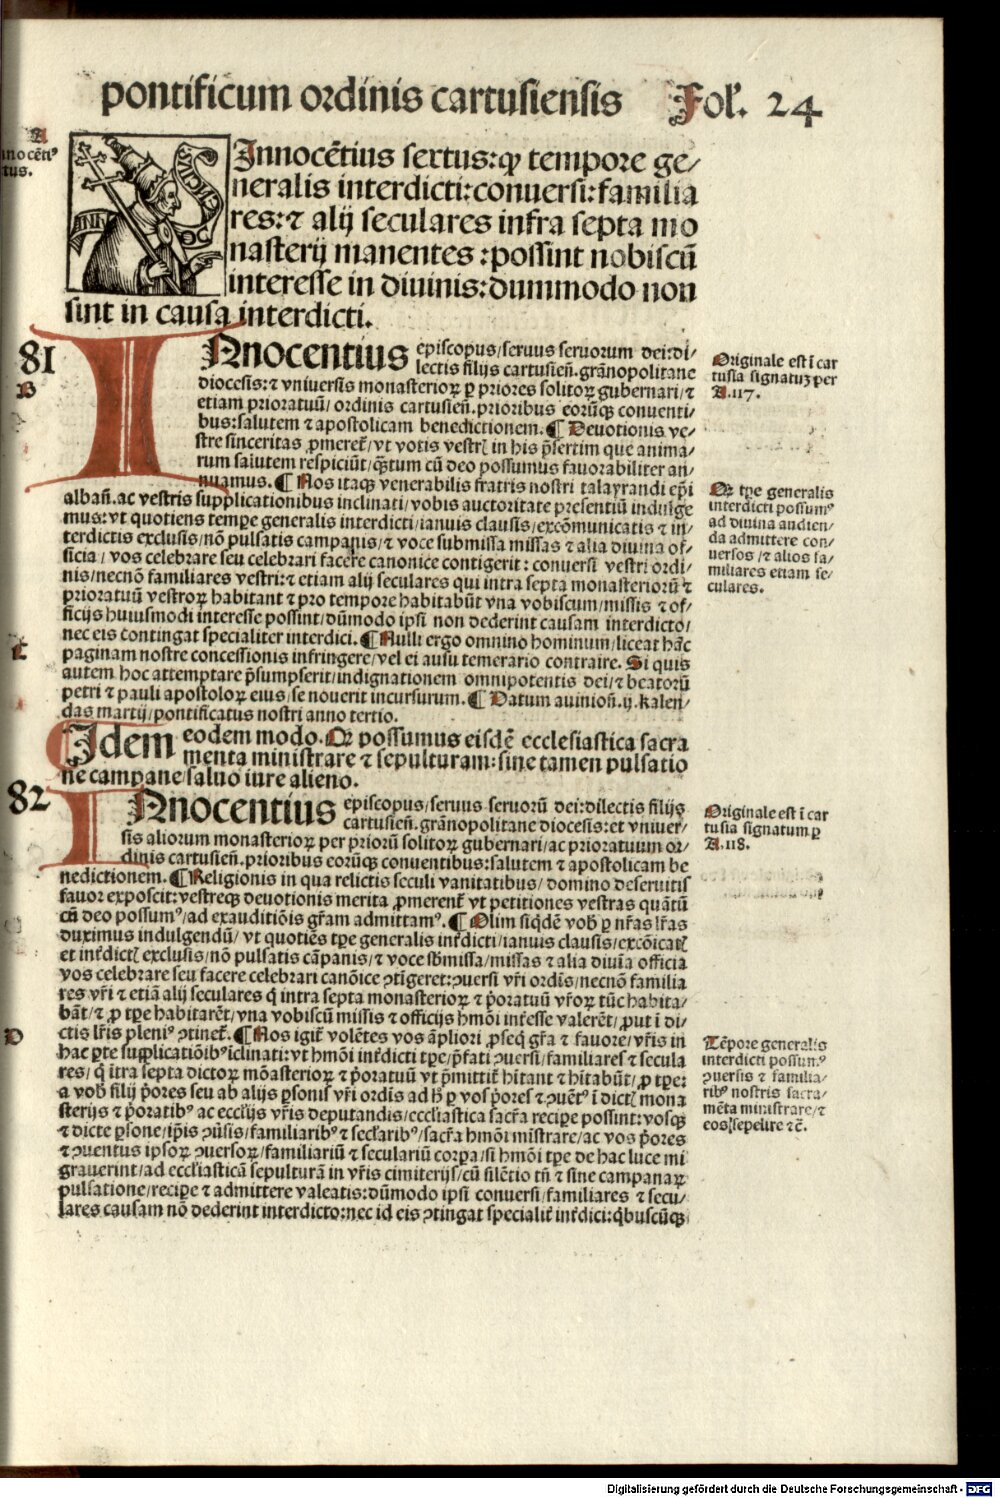 pontificum ordinis cartusiensis Fol. 24
A
nnocẽtiꝰ
tus.
Innocẽtius sextus: ꝙ tempore ge/
neralis interdicti: conuersi: familia
res: ⁊ alij seculares infra septa mo
nasterij manentes: possint nobiscũ
interesse in diuinis: dummodo non
sint in causa interdicti.
81
B
INnocentius episcopus/seruus seruorum dei: di/
lectis filijs cartusieñ. grãnopolitane
diocesis: ⁊ vniuersis monasterioꝝ ꝑ priores solitoꝝ gubernari/⁊
etiam prioratuũ/ordinis cartusieñ. prioribus eorũqꝫ conuenti/
bus: salutem ⁊ apostolicam benedictionem. ¶ Deuotionis ve/
stre sinceritas ꝓmeret̃/vt votis vestrꝭ in his p̃sertim que anima/
rum salutem respiciũt/qᷓꝫtum cũ deo possumus fauorabiliter an/
nuamus. ¶ Nos itaqꝫ venerabilis fratris nostri talayrandi ep̃i
albañ. ac vestris supplicationibus inclinati/vobis auctoritate presentiũ indulge
mus: vt quotiens tempe generalis interdicti/ianuis clausis/excõmunicatis ⁊ in/
terdictis exclusis/nõ pulsatis campanis/⁊ voce submissa missas ⁊ alia diuina of/
ficia/vos celebrare seu celebrari facere canonice contigerit: conuersi vestri ordi/
nis/necnõ familiares vestri: ⁊ etiam alij seculares qui intra septa monasteriorũ ⁊
prioratuũ vestroꝝ habitant ⁊ pro tempore habitabũt vna vobiscum/missis ⁊ of/
ficijs huiusmodi interesse possint/dũmodo ipsi non dederint causam interdicto/
nec eis contingat specialiter interdici. ¶ Nulli ergo omnino hominum/liceat hãc
paginam nostre concessionis infringere/vel ei ausu temerario contraire. Si quis
autem hoc attemptare p̃sumpserit/indignationem omnipotentis dei/⁊ beatorũ
petri ⁊ pauli apostoloꝝ eius/se nouerit incursurum. ¶ Datum auinioñ. ij. kalen/
das martij/pontificatus nostri anno tertio.
C
Idem eodem modo. Qꝫ possumus eisdẽ ecclesiastica sacra
menta ministrare ⁊ sepulturam: sine tamen pulsatio
ne campane/saluo iure alieno.
82
INnocentius episcopus/seruus seruorũ dei: dilectis filijs
cartusieñ. grãnopolitane diocesis: et vniuer/
sis aliorum monasterioꝝ per priorũ solitoꝝ gubernari/ac prioratuum or/
dinis cartusieñ. prioribus eorũqꝫ conuentibus: salutem ⁊ apostolicam be
nedictionem. ¶ Religionis in qua relictis seculi vanitatibus/domino deseruitis
fauor exposcit: vestreqꝫ deuotionis merita ꝓmerent̃ vt petitiones vestras quãtũ
cũ deo possumꝰ/ad exauditiõis gr̃am admittamꝰ. ¶ Olim siqđẽ vob̃ ꝑ nr̃as lr̃as
duximus indulgendũ/vt quotiẽs tꝑe generalis int̃dicti/ianuis clausis/excõicatꝭ
et int̃dictꝭ exclusis/nõ pulsatis cãpanis/⁊ voce sb̃missa/missas ⁊ alia diuĩa officia
vos celebrare seu facere celebrari canõice ꝯtĩgeret: ꝯuersi vr̃i ordĩs/necnõ familia
res vr̃i ⁊ etiã alij seculares q̃ intra septa monasterioꝝ ⁊ p̃oratuũ vr̃oꝝ tũc habita/
bãt/⁊ ꝓ tꝑe habitarẽt/vna vobiscũ missis ⁊ officijs hmõi int̃esse valerẽt/ꝓut ĩ di/
ctis lr̃is pleniꝰ ꝯtinet̃. ¶ Nos igit̃ volẽtes vos ãpliori ꝓseq̃ gr̃a ⁊ fauore/vr̃is in
hac ꝑte supplicatiõibꝰ ĩclinati: vt hmõi int̃dicti tꝑe/p̃fati ꝯuersi/familiares ⁊ secula
res/q̃ ĩtra septa dictoꝝ mõasterioꝝ ⁊ p̃oratuũ vt p̃mittit̃ hĩtant ⁊ hĩtabũt/ꝓ tꝑe:
a vob̃ filij p̃ores seu ab alijs ꝑsonis vr̃i ordĩs ad h̃ ꝑ vos p̃ores ⁊ ꝯuẽtꝰ ĩ dictꝭ mona
sterijs ⁊ p̃oratibꝰ ac eccl̃ijs vr̃is deputandis/eccl̃iastica sacr̃a recipe possint: vosqꝫ
⁊ dicte ꝑsone/ip̃is ꝯũsis/familiaribꝰ ⁊ secl̃aribꝰ/sacr̃a hmõi mĩstrare/ac vos p̃ores
⁊ ꝯuentus ipsoꝝ ꝯuersoꝝ/familiariũ ⁊ seculariũ corꝑa/si hmõi tꝑe de hac luce mi
grauerint/ad eccl̃iasticã sepulturã in vr̃is cimiterijs/cũ silẽtio tñ ⁊ sine campanaꝝ
pulsatione/recipe ⁊ admittere valeatis: dũmodo ipsi conuersi/familiares ⁊ secu/
lares causam nõ dederint interdicto: nec id eis ꝯtingat specialit̃ int̃dici: q̃buscũqꝫ
D
Originale est ĩ car
tusia signatuꝫ per
A. 117.
Qꝫ tꝑe generalis
interdicti possumꝰ
ad diuina audien/
da admittere con/
uersos/⁊ alios fa/
miliares etiam se/
culares.
Originale est ĩ car
tusia signatum ꝑ
A. 118.
Tẽpore generalis
interdicti possumꝰ
ꝯuersis ⁊ familia/
ribꝰ nostris sacra/
mẽta ministrare/⁊
eos sepelire ⁊c̃.
Digitalisierung gefördert durch die Deutsche Forschungsgemeinschaft - DFG